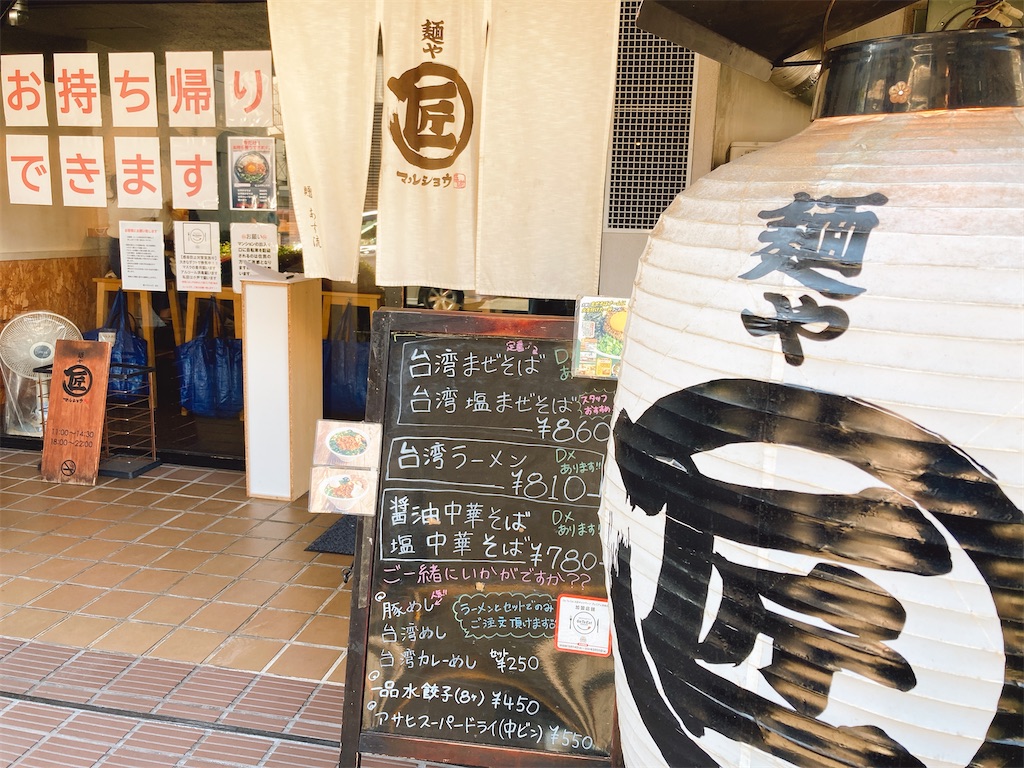 お持ち帰り
できます
麺や
匠
マルショウ
お願い
麺や
匠
マルショウ
11:00~14:30
18:00~22:00
定番!!
台湾まぜそば
台湾塩まぜそば
スタッフ
おすすめ
¥860
台湾ラーメン
DX
あります!!
¥810-
醤油中華そば
DX
あります
塩中華そば ¥780-
ご一緒にいかがですか??
人気!!
豚めし
ラーメンとセットでのみ
ご注文頂けます
台湾めし
台湾カレーめし セット ¥250
一品水餃子(8ヶ) ¥450
アサヒスーパードライ(中ビン) ¥550
麺や
匠